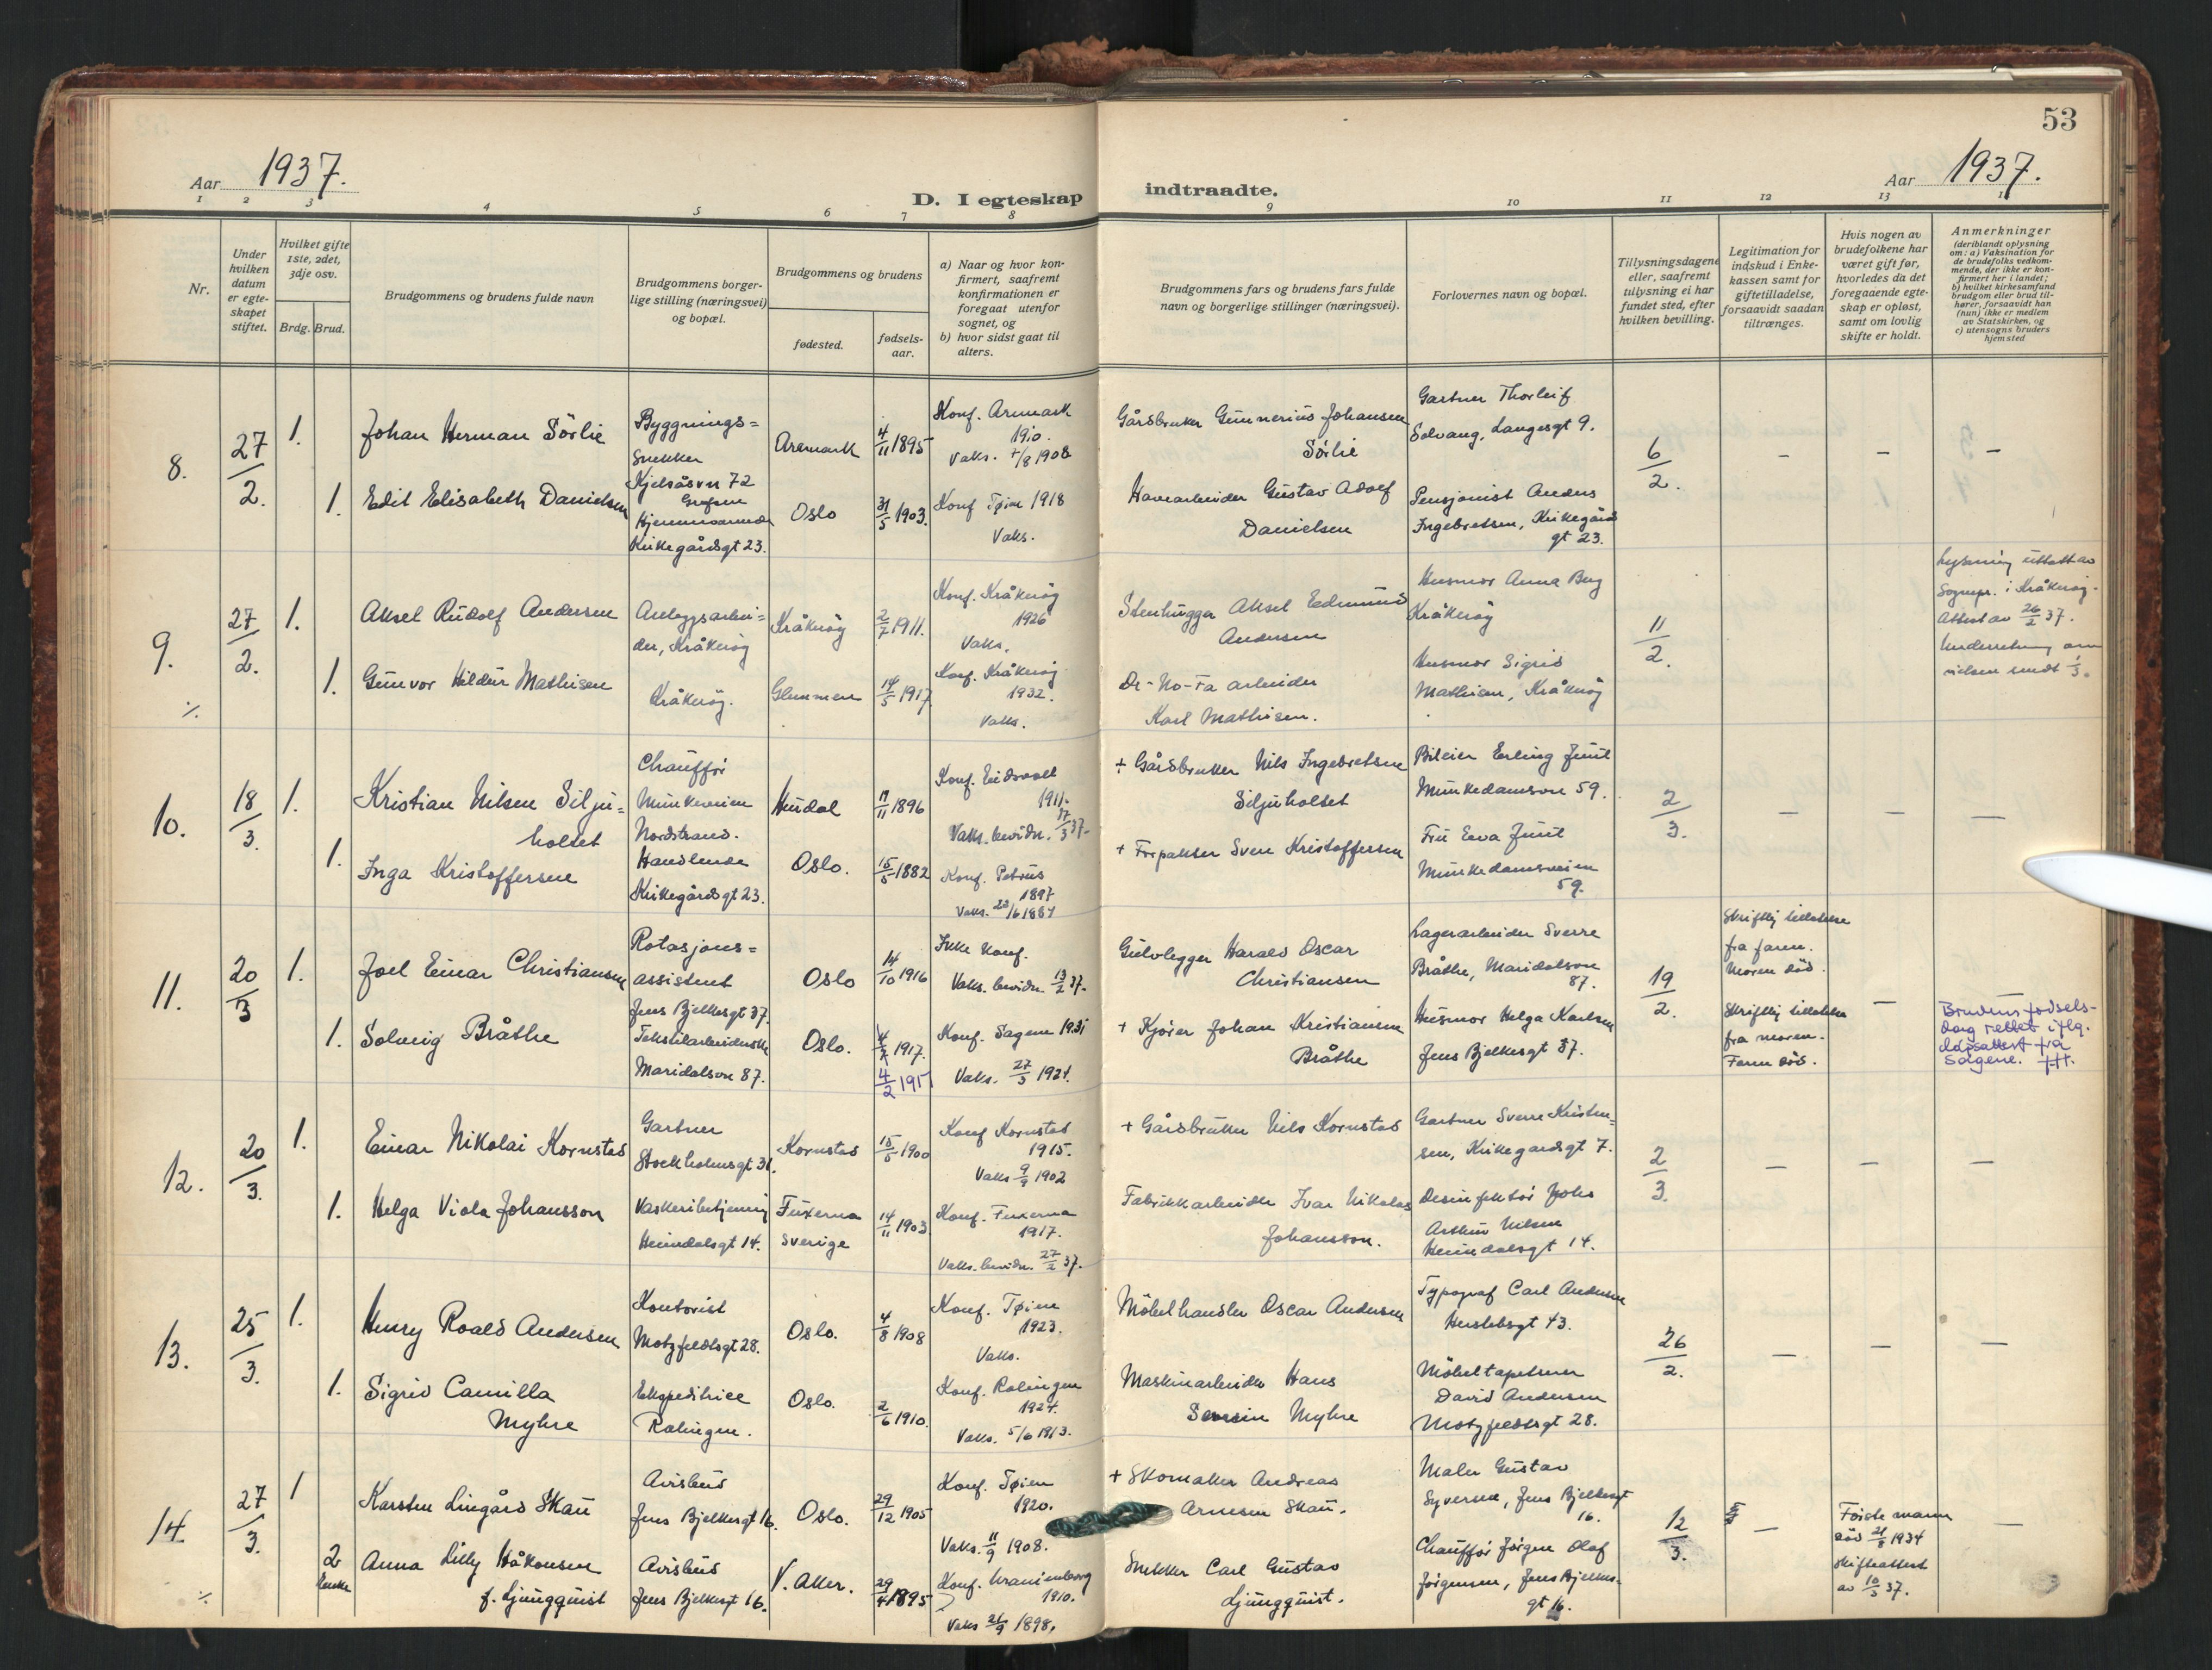 53
Aar 1937.
D. I egteskap indtraadte.
Aar 1937.
1 2 3 4 5 6 7 8 9 10 11 12 13 1
Nr.
Under hvilken datum er egte-skapet stiftet.
Hvilket gifte 1ste, 2det, 3dje osv.
Brdg. Brud.
Brudgommens og brudens fulde navn
Brudgommens borger-lige stilling (næringsvei) og bopæl.
Brudgommens og brudens
fødested.
fødsels-aar.
a) Naar og hvor kon-firmert, saafremt konfirmationen er foregaat utenfor sognet, og
b) hvor sidst gaat til alters.
Brudgommens fars og brudens fars fulde navn og borgerlige stillinger (næringsvei).
Forlovernes navn og bopæl.
Tillysningsdagene eller, saafremt tillysning ei har fundet sted, efter hvilken bevilling.
Legitimation for indskud i Enke-kassen samt for giftetilladelse, forsaavidt saadan tiltrænges.
Hvis nogen av brudefolkene har været gift før, hvorledes da det foregaaende egte-skap er opløst, samt om lovlig skifte er holdt.
Anmerkninger
(deriblandt oplysning om: a) Vaksination for de brudefolks vedkom-mende, der ikke er kon-firmert her i landet; b) hvilket kirkesamfund brudgom eller brud til-hører, forsaavidt han (hun) ikke er medlem av Statskirken, og c) utensogns bruders hjemsted
8.
27/2.
1.
Johan Herman Sörlie
Byggnings=
snekker
Kjelsåsvn 72
Grefsen
Aremark
4/11 1895
Konf. Aremark
1910.
Vaks. 1908
Gårdbruker Gunnerius Johansen
Sörlie
Gartner Thorleif
Solvang, Langesgt 9.
6/2.
– – –
1.
Edit Elisabeth Danielsen
Hjemmeværende
Kirkegårdsgt 23.
Oslo
31/5 1903.
Konf Tøien 1918
Vaks.
Havearbeider Gustav Adolf
Danielsen
Pensjonist Anders
Ingebretsen, Kirkegård
gt 23.
9.
27/2.
1.
Aksel Rudolf Andersen
Anleggsarbei=
der, Kråkerøy
Kråkerøy
2/7 1911.
Konf. Kråkerøy
1926
Vaks.
Stenhugger Aksel Edmund
Andersen
Husmor Anna
Kråkerøy
11/2.
Lysning uttatt av
Sognepr. i Kråkerøy.
Attest av 26/2 37.
Underretning om
vielsen sendt 1/3.
1.
Gunvor Hildur Mathisen
Kråkerøy.
Glemmen
14/5 1917
Konf. Kråkerøy
1932.
Vaks.
De-No-Fa arbeider
Karl Mathisen.
Husmor Sigrid
Mathisen, Kråkerøy
%
10.
18/3.
1.
Kristian Nilsen Silju=
holtet
Chauffør
Munkerveien
Nordstrand.
Hurdal
1896
Konf. Eidsvoll
1911.
Vaks. bevidn. 17/3 37.
+ Gårdbruker Nils Ingebretsen
Siljuholtet
Bileier Erling Juul
Munkedamsvn 59.
2/3.
– – –
1.
Inga Kristoffersen
Handlende
Kirkegårdsgt 23.
Oslo.
15/5 1882
Konf. Petrus
1897
Vaks. 23/6 1884
+ Forpakter Sven Kristoffersen
Fru Eva Juul
Munkedamsveien
59.
11.
20/3
1.
Joel Einar Christiansen
Rotasjons=
assistent
Jens Bjelkesgt 37.
Oslo
14/10 1916
Ikke konf.
Vaks. bevidn 13/2 37.
Gulvlegger Harald Oscar
Christiansen
Lagerarbeider Sverre
Bråthe, Maridalsvn
87.
19/2.
Skriftlig tillatelse
fra faren.
Moren död.
–
1.
Solveig Bråthe
Tekstilarbeiderske
Maridalsvn 87.
Oslo.
4/7 1917.
4/2 1917
Konf. Sagene 1931
Vaks. 27/3 1924.
+ Kjører Johan Kristiansen
Bråthe
Husmor Helga Karlsen
Jens Bjelkesgt 37.
Skriftlig tillatelse
fra moren.
Faren död.
Brudens fødsels-
dag rettet iflg.
dåpsattest fra
Sagene.
12.
20/3.
1.
Einar Nikolai Kornstad
Gartner
Stockholmsgt 31.
Kornstad
15/5 1900
Konf Kornstad
1915.
Vaks 9/9 1902
+ Gårdbruker Nils Kornstad
Gartner Sverre Kristen=
sen, Kirkegardsgt 7.
2/3.
– – –
1.
Helga Viola Johansson
Vaskeribetjening
Heimdalsgt 14.
Fuxerna
Sverige
14/11 1903
Konf. Fuxerna
1917.
Vaks. bevidn. 27/2 37.
Fabrikkarbeider Ivar Nikolas
Johansson.
Desinfektør Johs
Arthur Nilsen
Heimdalsgt 14.
13.
25/3.
1.
Henry Roald Andersen
Kontorist
Motzfeldtsgt 28.
Oslo.
4/8 1908
Konf. Tøien
1923.
Vaks.
Möbelhandler Oscar Andersen
Typograf Carl Andersen
Herslebsgt 43.
26/2.
– – –
1.
Sigrid Camilla
Myhre
Ekspeditrice
Rælingen.
Oslo.
2/6 1910.
Konf. Rælingen
1924.
Vaks. 5/6 1913.
Maskinarbeider Hans
Severin Myhre
Möbeltapetserer
David Andersen
Motzfeldtsgt 28.
14.
27/3.
1
Karsten Lingård Skau
Avisbud
Jens Bjelkesgt 16.
Oslo.
29/12 1905
Konf. Tøien
1920.
Vaks. 11/9 1908.
+ Skomaker Andreas
Arnesen Skau.
Maler Gustav
Syversen, Jens Bjelkesgt
16.
12/3.
–
Første mann
död 21/8 1934
skifteattest
av 10/3 37.
–
2
Enke
Anna Lilly Håkonsen
f. Ljungquist
Avisbud
Jens Bjelkesgt 16.
V. Aker.
29/4 1895
Konf. Uranienborg
1910.
Vaks 21/9 1898.
Snekker Carl Gustav
Ljungquist.
Chauffør Jørgen Olaf
Jørgensen, Jens Bjelkes-
gt 16.
%